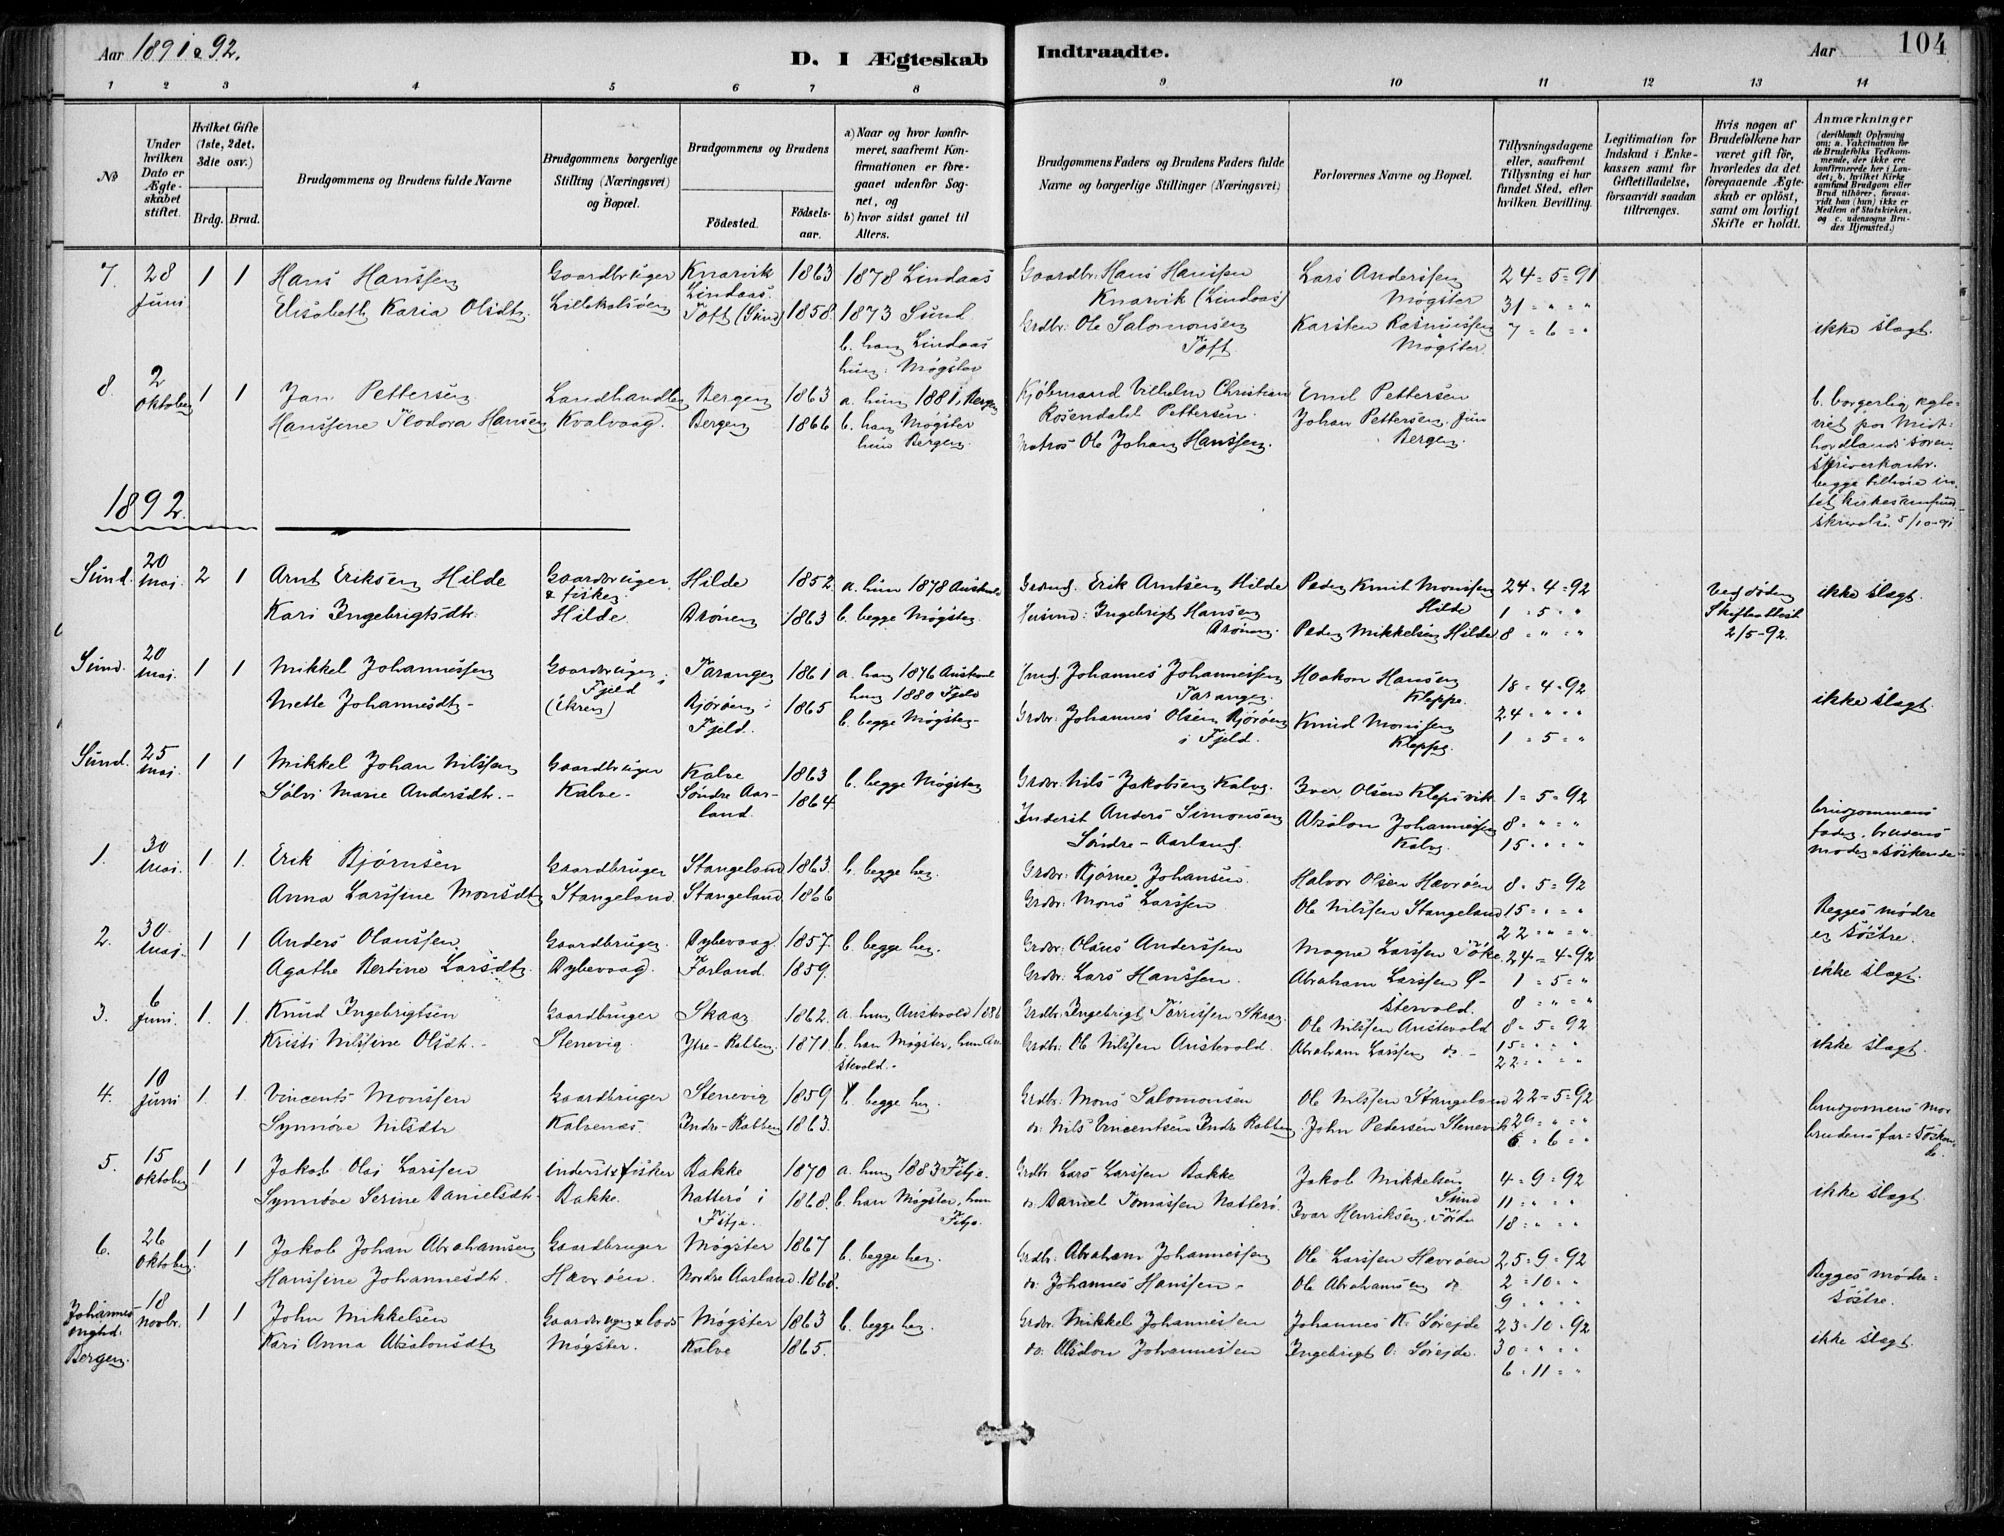 Aar 1891 & 92.
D. I Ægteskab Indtraadte.
Aar 104
1 2 3 4 5 6 7 8 9 10 11 12 13 14
No
Under hvilken Dato er Ægteskabet stiftet.
Hvilket Gifte (1ste, 2det, 3die osv.)
Brdg. Brud.
Brudgommens og Brudens fulde Navne
Brudgommens borgerlige Stilling (Næringsvei) og Bopæl.
Brudgommens og Brudens
Fødested. Fødselsaar.
a) Naar og hvor konfirmeret, saafremt Konfirmationen er foregaaet udenfor Sognet, og
b) hvor sidst gaaet til Alters.
Brudgommens Faders og Brudens Faders fulde Navne og borgerlige Stillinger (Næringsvei)
Forlovernes Navne og Bopæl.
Tillysningsdagene eller, saafremt Tillysning ei har fundet Sted, efter hvilken Bevilling.
Legitimation for Indskud i Enkekassen samt for Giftetilladelse, forsaavidt saadan tiltrænges.
Hvis nogen af Brudefolkene har været gift før, hvorledes da det foregaaende Ægteskab er opløst, samt om lovligt Skifte er holdt.
Anmærkninger (deriblandt Oplysning om: a. Vakcination for de Brudefolks Vedkommende, der ikke ere konfirmerede her i Landet; b. hvilket Kirkesamfund Brudgom eller Brud tilhører, forsaavidt han (hun) ikke er Medlem af Statskirken, og c. udensogns Brudes Hjemsted.)
7. 28 Juni 1 1 Hans Hanssen Gaardbruger Knarvik Lindaas. 1863 1878 Lindaas Gaardbr: Hans Hanssen Knarvik (Lindaas) Lars Anderssen Møgster 24=5=91
Elisabeth Karia Olsdtr. Lillekalsøen Toft (Sund) 1858. 1873 Sund. Grdbr: Ole Salomonsen Toft. Karsten Rasmussen Møgster. 31 = " = "
b. han Lindaas hun: Møgster 7 = 6 = " ikke slagt.
8. 2 Oktober 1 1 Jan Pettersen Landhandler Bergen 1863 a. hun 1881, Bergen Kjøbmand Vilhelm Christian Rosendahl Pettersen. Emil Pettersen
Hanssine Teodora Hansen Kvalvaag. Bergen 1866 b. han Møgster hun Bergen. Matros Ole Johan Hanssen. Johan Pettersen. Jun Bergen.
b. borgerlig ægteviet paa Midthordlands Sorenskriverkontor. begge tilhøre intet kirkesamfund 5/10-91
1892.
Sund. 20 Maj. 2 1 Arnt Eriksen Hilde Gaardbruger & fisker Hilde 1852. a. hun 1878 Austevold Erik Arntsen Hilde Peder Knut Monssen Hilde 24=4=92 Ved døden Skifteattest 2/5-92. ikke slagt.
Kari Ingebrigtsdtr. Hilde Drønen 1863 b. begge Møgster Husmd: Ingebrigt Hansen Drønen. Peder Mikkelsen Hilde 1 = 5 = "
8 = " = "
Sund. 20 Maj. 1 1 Mikkel Johannessen Gaardbruger i Fjeld Taranger 1861 a. han 1876 Austevold hun 1880 Fjeld Johannes Johannessen Taranger. Haakon Hansen Kleppe. 18=4=92
Mette Johannesdtr - Bjørøen i Fjeld. 1865 b. begge Møgster - Grdbr: Johannes Olsen Bjørøen i Fjeld. Knud Monssen Kleppe. 24 = " = " ikke slagt.
1 = 5 = "
Sund. 25 Maj. 1 1 Mikkel Johan Nilssen Gaardbruger Kalve 1863 b. begge Møgster Grdbr: Nils Jakobsen Kalve Iver Olsen Klepsvik 1=5=92
Sølvi Marie Andersdtr. - Kalve - Søndre Aarland. 1864 Inderst Anders Simonsen Søndre-Aarland Absalon Johannessen Kalve 8 = " = "
15 = " = "
brudgommens fader, brudens moder = søskende
1. 30 Maj. 1. 1. Erik Bjørnsen Gaardbruger Stangeland 1863. b. begge her. Grdbr: Bjørne Johansen. Halvor Olsen Havrøen 8=5=92
Anna Larssine Monsdtr Stangeland. Stangeland. 1866 Grdbr: Mons Larssen Ole Nilssen Stangeland 15 = " = "
22 = " = "
Begges mødre er søstre.
2. 30. Maj. 1 1 Anders Olaussen Gaardbruger. Dybevaag. 1857. b. begge her. Grdbr: Olaus Anderssen Magne Larssen Føke. 24=4=92
Agathe Bertine Larsdtr. Dybevaag. Farland. 1859. Grdbr: Lars Hanssen. Abraham Larssen Østervold. 1 = 5 = " ikke slagt.
8 = " = "
3. 6 Juni. 1. 1. Knud Ingebrigtsen Gaardbruger Skaar 1862. a. hun Austevold 1886 Grdbr: Ingebrigt Torrissen Skaar Ole Nilssen Austevold 8=5=92
Kristi Nilssine Olsdtr. - Stenevig. Ytre-Rabben. 1871. b. han Møgster, hun Austevold. Grdbr: Ole Nilssen Austevold. Abraham Larssen do - 15 = " = " ikke slagt.
22 = " = "
4. 10 Juni 1. 1. Vincents Monssen Gaardbruger Stenevig 1859 b. begge her. Grdbr: Mons Salomonsen Ole Nilssen Stangeland 22=5=92
Synnøve Nilsdtr Kalvenæs. Indre-Rabben 1863. do: Nils Vincentsen Indre Rabben John Pedersen Stenevik 29 = " = "
6 = 6 = "
brudgommens mor brudens far = søskende.
5. 15 Oktober 1 1 Jakob Olai Larssen inderst & fisker Bakke 1870 a. hun 1883 Fitje. Grdbr Lars Larssen Bakke Jakob Mikkelsen Sund 4=9=92
Synnøve Serine Danielsdtr Bakke. Natterø i Fitje. 1868. b. han Møgster, hun Fitje. do. Daniel Tomassen Natterø. Ivar Henriksen, Førde 11 = " = " ikke slagt.
18 = " = "
6. 26 Oktober. 1 1 Jakob Johan Abrahamsen Gaardbruger Møgster 1867 b. begge her. Grdbr: Abraham Johannessen Ole Larssen Havrøen 25=9=92
Hanssine Johannesdtr. Havrøen. Nordre Aarland. 1868. do: Johannes Hanssen - Ole Abrahamsen do 2 = 10 = "
9 = " = "
Begges mødre = søstre.
Johannes mghd. Bergen. 18 Novbr. 1 1 John Mikkelsen Gaardbruger & lods Møgster 1863 b. begge her. Grdbr: Mikkel Johannessen Johannes K. Sørejde 23=10=92
Kari Anna Absalonsdtr Møgster. Kalve 1865. do: Absalon Johannessen Ingebrigt O: Sørejde. 30 = " = " ikke slagt.
6 = 11 = "